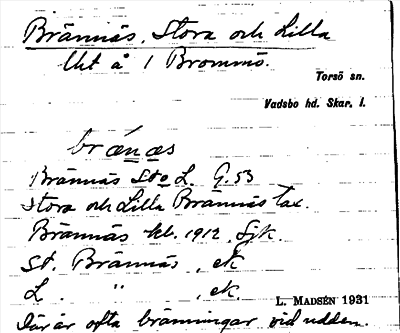 Brännäs, Stora och Lilla
Ut å / Brommö.
Torsö sn.
Vadsbo hd. Skar. l.
brǽnæs
Brännäs St o L. G. 53
Stora och Lilla Brännäs Tax.
Brännäs hl. 1912, Sjk.
St. Brännäs, ek
L. " , ek.
L. MADSÉN 1931
Där är ofta bränningar vid udden.